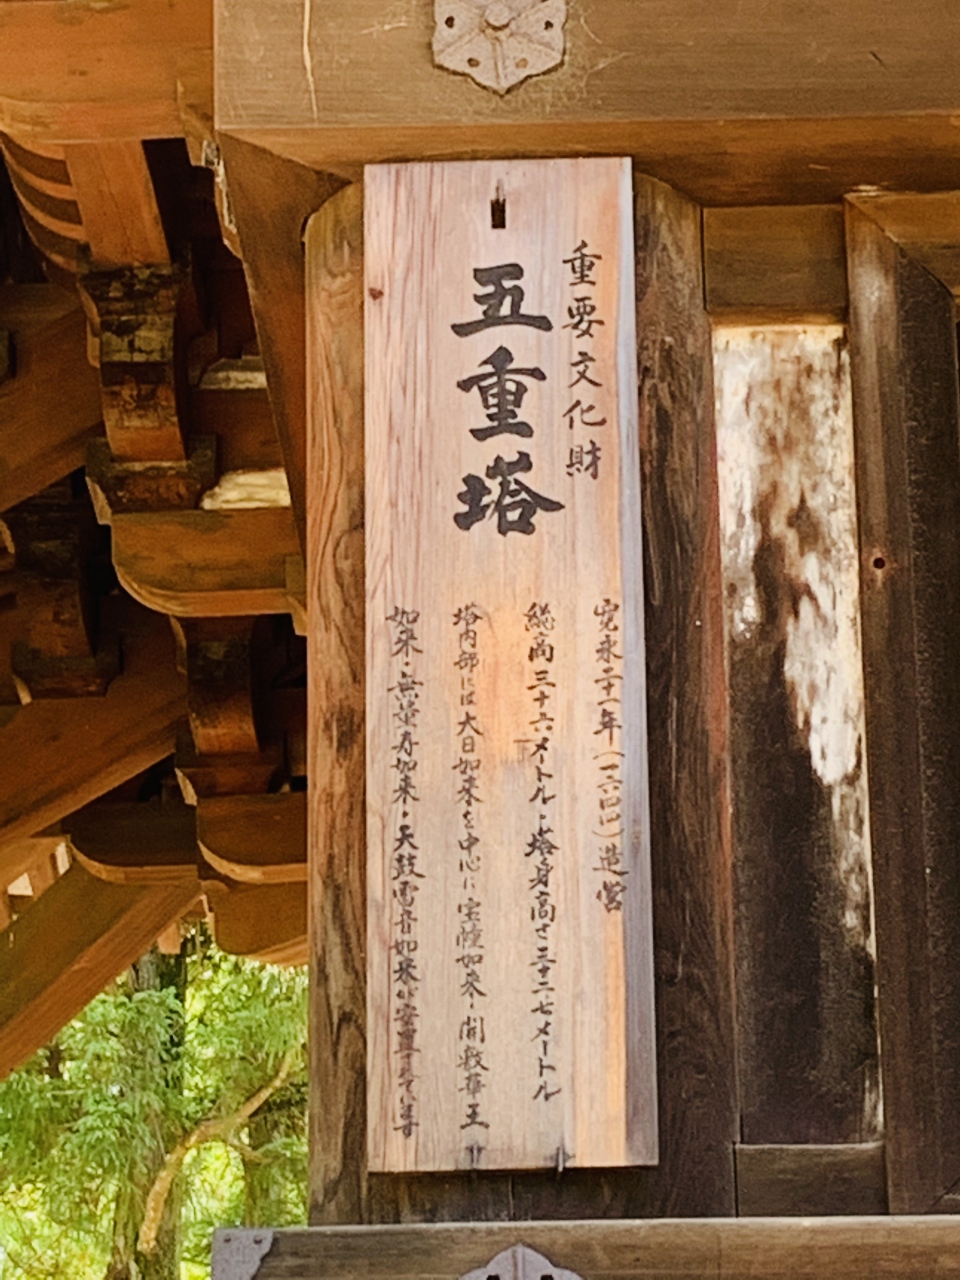 重要文化財
五重塔
寛永二十一年(一六四四)造営
総高三十六メートル・塔身高さ三十二、七メートル
塔内部には大日如来を中心に宝幢如来・開敷華王
如来・無量寿如来・天鼓雷音如来が安置